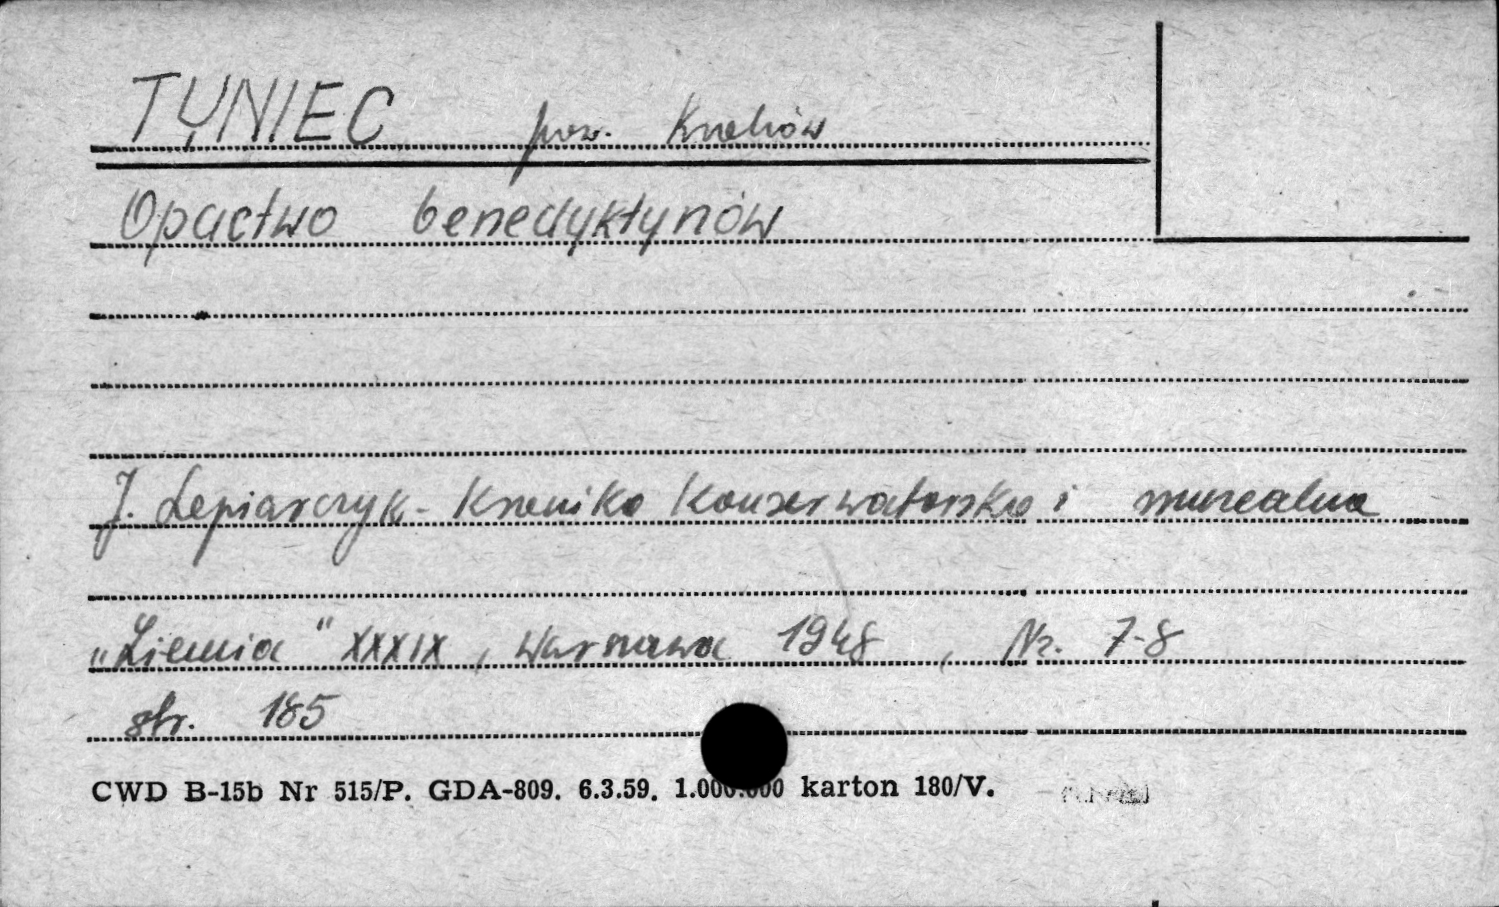 TYNIEC pow. Kraków
Opactwo benedyktynów
J. Lepiarczyk - Kronika Konserwatorska i muzealna
„Ziemia" XXXIX, Warszawa 1948, Nr. 7-8
str. 185
CWD B-15b Nr 515/P. GDA-809. 6.3.59. 1.000.000 karton 180/V.